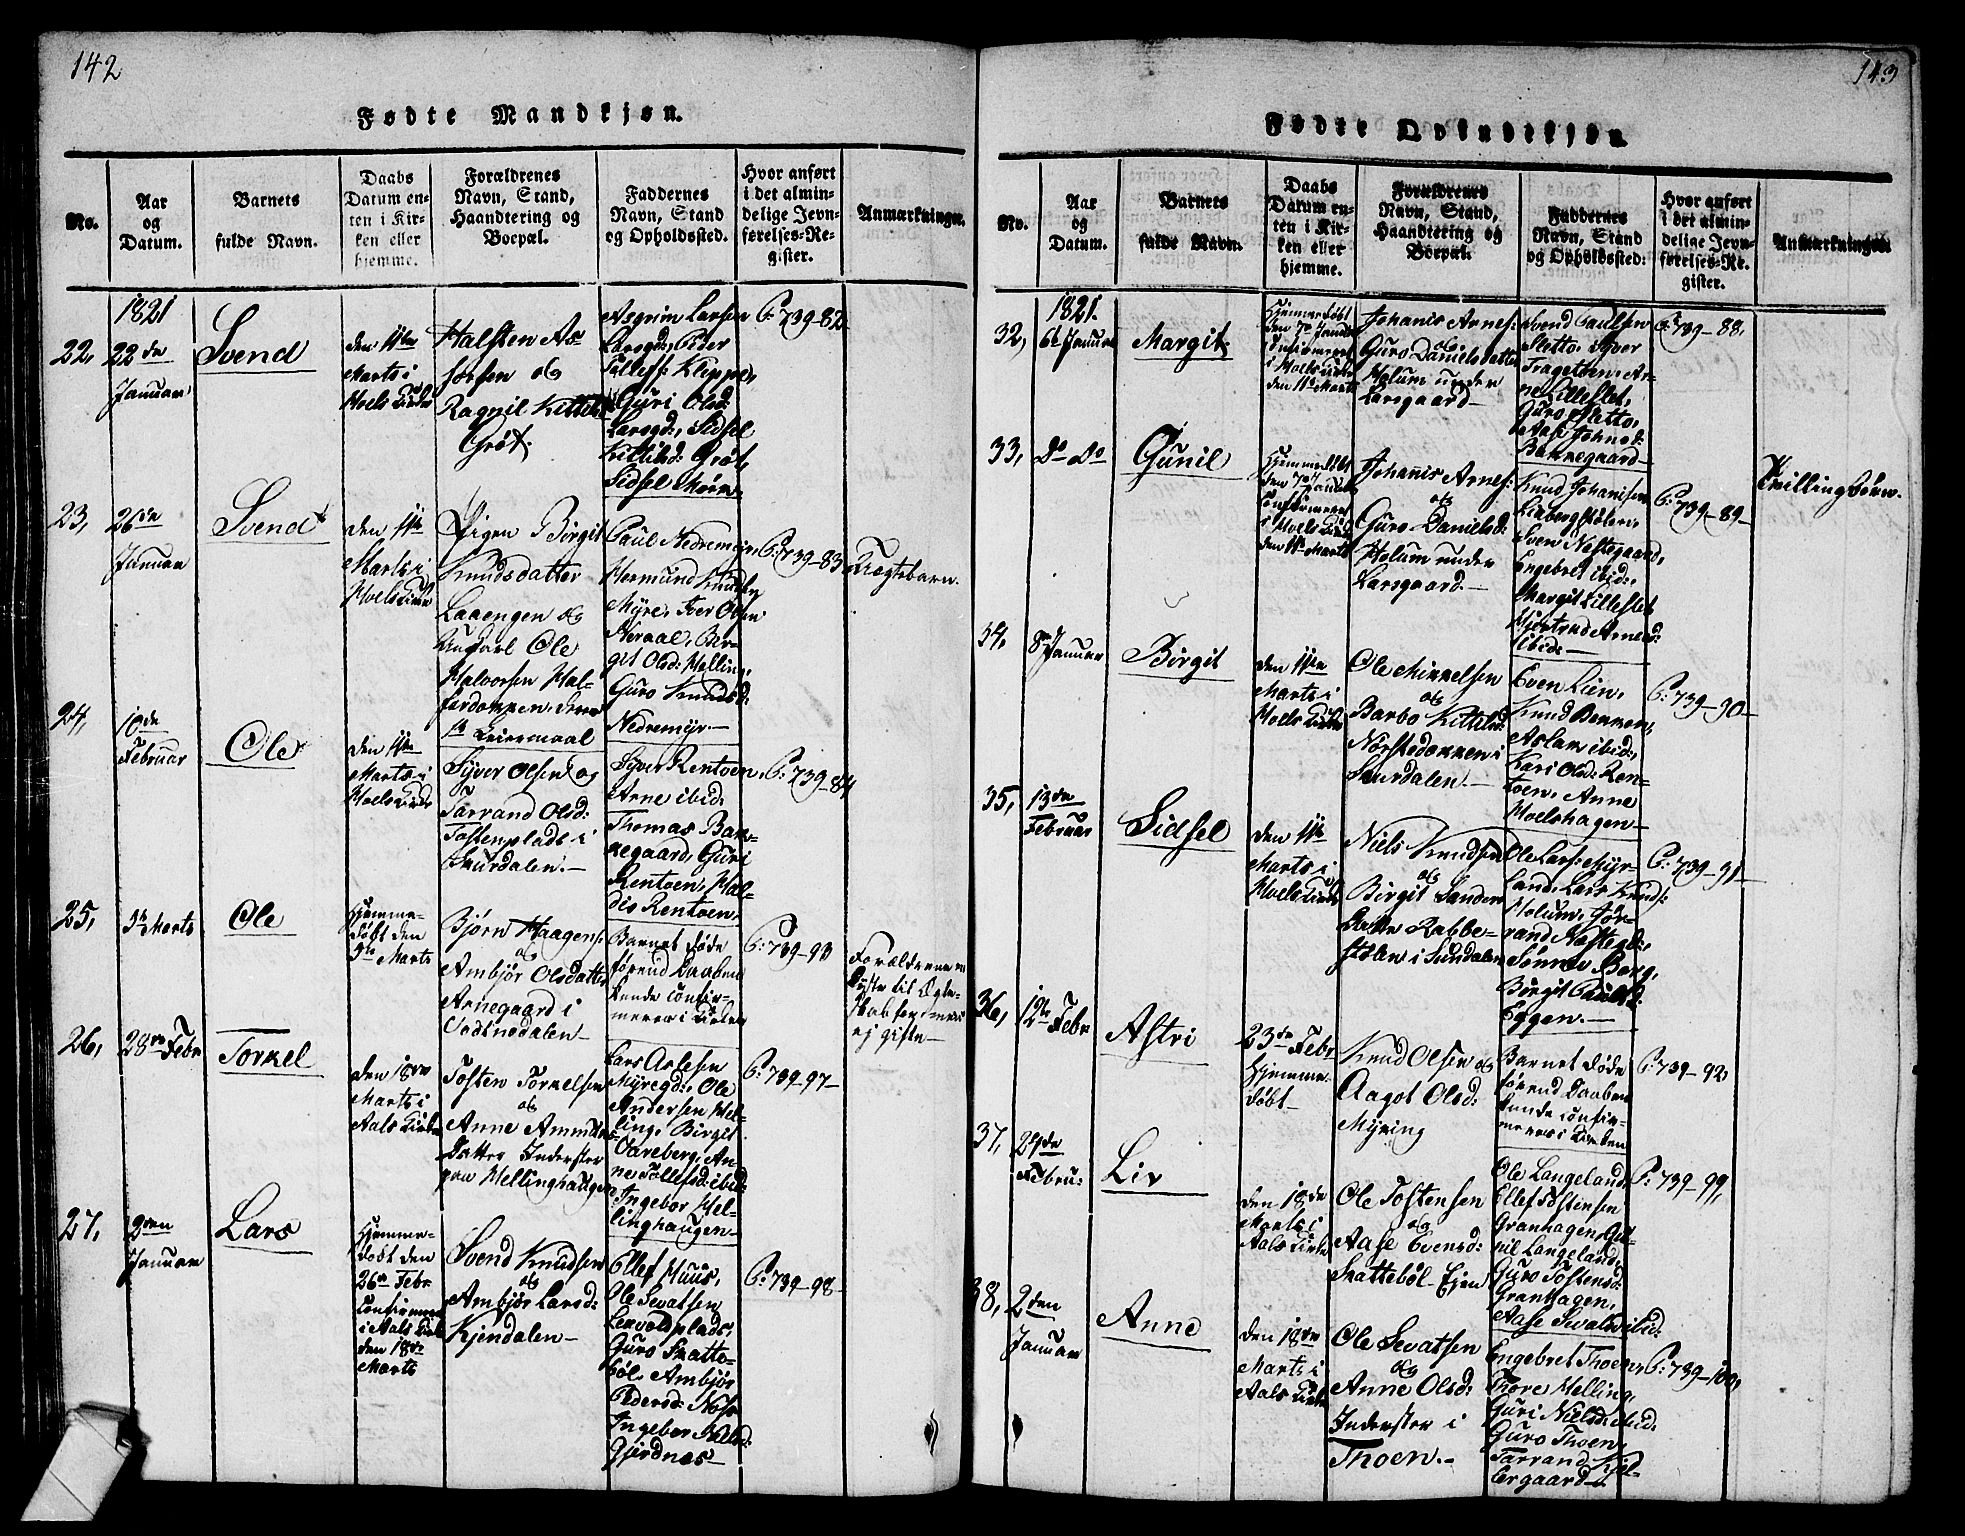 142
Fødte Mandkjøn.
No.
Aar
og
Datum.
Barnets
fulde Navn.
Daabs
Datum en-
ten i Kir-
ken eller
hjemme.
Forældrenes
Navn, Stand,
Haandtering og
Boepæl.
Faddernes
Navn, Stand
og Opholdssted.
Hvor anført
i det almin-
delige Jevn-
førelses-Re-
gister.
Anmærkninger.
1821
22,
22de
Januar
Svend
den 11te
Marts i
Hoels Kirke
Halsten As
lorsen og
Ragnil Kittels
Grøt
Asgrim Larsen
Larsgd:, Peder
Tollefs: Kleppe,
Guri Olsd:
Larsgd:, Sidsel
Kittilsd: Grøt,
Sidsel Moen
P: 739-82
23,
26de
Januar
Svend
den 11te
Marts i
Hoels Kirke
Pigen Birgit
Knudsdatter
Laaengen og
Ungkarl Ole
Halvorsen Hal-
fardokken, deres
1te Leiermaal
Paul Nedremyr,
Hermund Knuds:
Myre, Iver Olsen
Noraal, Bir-
git Olsd: Melling,
Guro Knudsd:
Nedremyr
P: 739-83
Uægtebarn.
24,
10de
Februar
Ole
den 11te
Marts i
Hoels Kirke
Syver Olsen og
Tarrand Olsd:
Tostenplads i
Skurdalen.
Syver Rentoen,
Arne ibid:
Thomas Bak-
kegaard, Guri
Rentoen, Hal-
dis Rentoen,
P: 739-84
25,
3de Marts
Ole
Hjemme-
døbt den
9de Marts
Bjørn Haagens:
og
Ambjør Olsdatter
Arnegaard i
Vodtnedalen
Barnet døde
førend Daaben
kunde confir-
meres i Kirken
P: 739-93
Forældrene
lyste til Ægte-
skab, endnu
ej gifte
26,
28de Febr
Torkel
den 18de
Marts i
Aals Kirke
Tosten Torkelsen
og
Anne Amund
Datter Inderster
paa Mellinghaugen
Lars Aslesen
Myregd:, Ole
Andersen Mel-
ling, Birgit
Vareberg, An-
ne Tollefsd: ibid:
Ingebor Mel-
linghaugen
P: 739-97
27,
2den
Januar
Lars
Hjemme-
døbt den
26de Febr
Confirmeret
i Aals Kirke
den 18de
Marts
Svend Knudsen
og
Ambjør Larsd:
Kjendalen
Ellef Huus,
Ole Sevatsen
Lexvoldplads,
Guro Skatte-
bøl, Ambjør
Pedersd: Noss
Ingebor Nielsd:
Gjerdnæs
P: 739-98
143
Fødte Qvindekjøn.
No.
Aar
og
Datum.
Barnets
fulde Navn.
Daabs
Datum en-
ten i Kir-
ken eller
hjemme.
Forældrenes
Navn, Stand,
Haandtering og
Boepæl.
Faddernes
Navn, Stand
og Opholdssted.
Hvor anført
i det almin-
delige Jevn-
førelses-Re-
gister.
Anmærkninger.
1821.
32,
6te Januar
Margit
Hjemmedøbt
den 7de Januar
Confirmeret
i Hoels Kirke
den 11te Marts
Johanis Arnes:
og
Guro Danielsdatter
Holum under
Larsgaard
Svend Paulsen
Sletto, Syver
Trageteen, Ar-
ne Lilleslet,
Guro Sletto,
Aase Johnsd:
Bakkegaard
P: 739-88,
33,
Do Do
Gunil
Hjemmedøbt
den 7de Januar
Confirmeret
i Hoels Kirke
den 11te Marts
Johanis Arnes:
og
Guro Danielsd:
Holum under
Larsgaard
Knud Johanisen
Lienbergstølen,
Sven Nestegaard,
Engebret ibid:,
Margit Lilleslet
Hjertrud Arnesd:
ibid:
P: 739-89
Tvillingbørn.
34,
8de
Januar
Birgit
den 11te
Marts i
Hoels Kirke
Ole Mikkelsen
og
Barbo Kittelsd:
Norstedokken i
Skurdalen.
Even Lien,
Knud Bekken,
Aslak ibid:,
Kari Olsd: Ren-
toen, Anne
Hoelshagen
P: 739-90
35,
13de
Februar
Sidsel
den 11te
Marts i
Hoels Kirke
Niels Knudsen
og
Birgit Sanders
Datter Rabbe-
stølen i Sundalen
Ole Lars: Myr-
land, Lars Knuds:
Holum, Tør-
rand Næstegd:,
Sønnev Berg,
Birgit Paulsd:
Eggen.
P: 739-91
36,
12te Febr
Astri
23de Febr
Hjemme-
døbt
Knud Olsen og
Aagot Olsd:
Myring
Barnet døde
førend Daaben
kunde confir-
meres i Kirken
P: 739-92,
37,
24de
Februar:
Liv
den 18de
Marts i
Aals Kirke
Ole Tostensen
og
Aase Evensd:
Skattebøl-Ejen
Ole Langeland,
Ellef Tostensen
Granhagen, Gu-
nil Langeland,
Guro Tostensd:
Granhagen,
Aase Sevatsd: ibid:
P: 739-99,
38,
2den
Januar
Anne
den 18de
Marts i
Aals Kirke
Ole Sevatsen
og
Anne Olsd:
Inderster i
Thoen.
Engebret Thoen,
Thore Melling,
Guri Nielsd: ibid:
Guro Thoen,
Tarrand Kjel-
bergaard
P: 739-100,